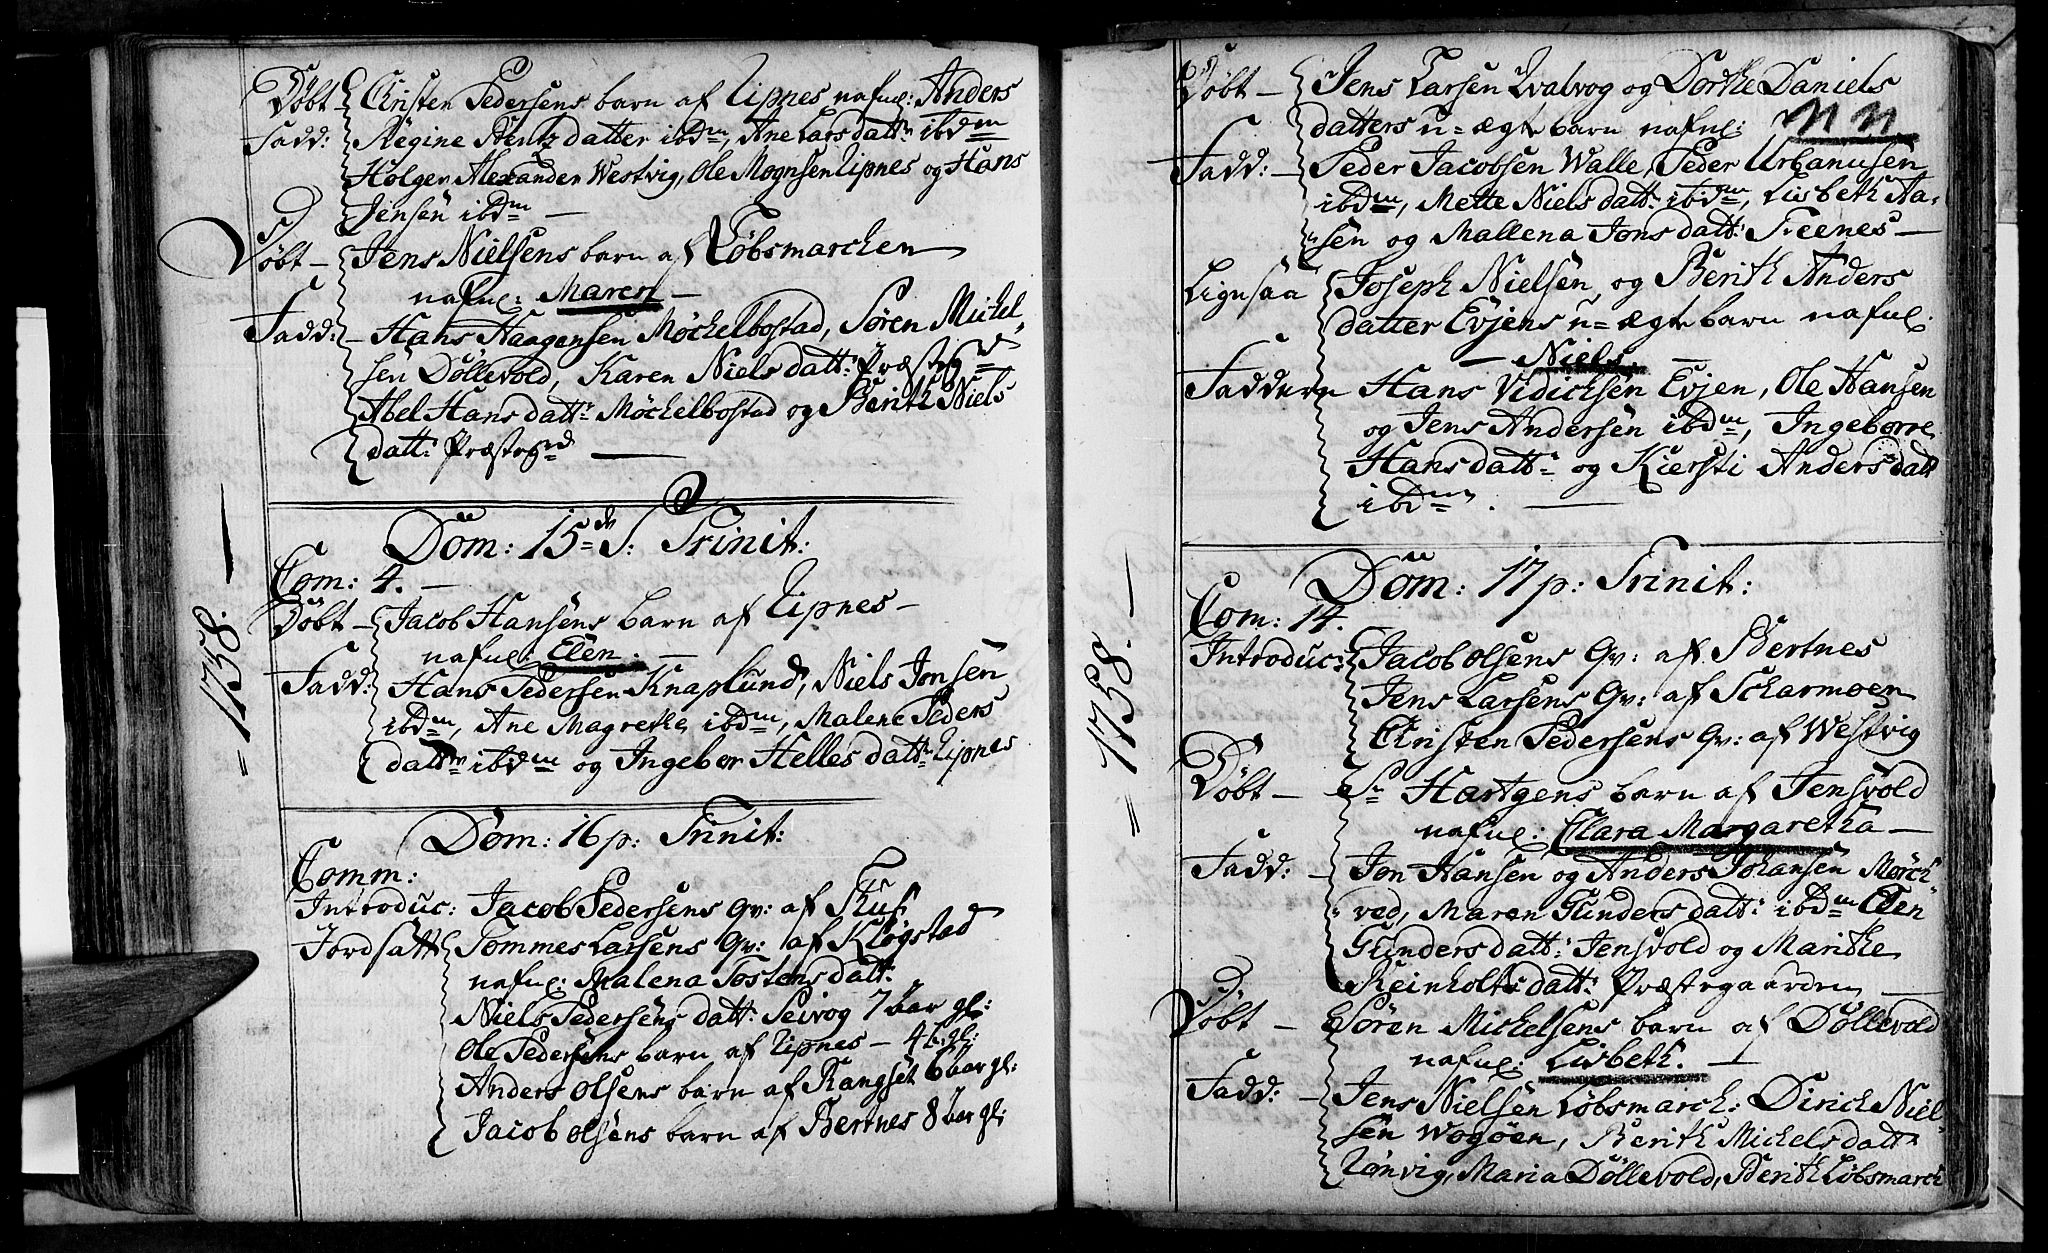 = 1758. —
Döbt Christen Pedersens barn af Lipnes nafnl: Anders
Fadd: Regine Bentz datter ibdm, Ane Lars datt: ibdm
Holger Alexander Westvig, Ole Mognsen Lipnes og Hans
Jensen ibdm —
Döbt – Jens Nielsens barn af Löbsmarchen
nafnl: Maren —
Fadd: – Hans Haagensen Möchelbostad, Sören Michel-
sen Döllevold, Karen Niels datt: Præstegd
Abel Hans datt: Möchelbostad og Berith Niels
datt: Præstegd —
Dom: 15de S: Trinit:
Com: 4. —
Döbt – Jacob Hansens barn af Lipnes –
nafnl: Elen. —
Fadd: Hans Pedersen Knaplund, Niels Jonsen
ibdm, Ane Magrethe ibdm, Malene Peders
datter ibdm og Ingebor Helles datt: Lipnes
Dom: 16 p: Trinit:
Comm:
Introduc: Jacob Pedersens Qv: af
Jordsatt Tommes Larsens Qv: af Klogstad
nafnl: Malena Tostens datt:
Niels Pedersens datt: Seivog 7 aar gl:
Ole Pedersens barn af Lipnes – 4 gl:
Anders Olsens barn af Rangset 6 aar gl:
Jacob Olsens barn af Bertnes 8 aar gl:
= 1758. —
Döbt – Jens Larsen Hvalvog og Dorthe Daniels
datters u=ægte barn nafnl: NN
Fadd: – Peder Jacobsen Walle, Peder Urbanusen
ibdm, Mette Niels datt: ibdm, Lisbeth Aa-
sen og Mallena Jons datt: Treenes —
Lignsaa Joseph Nielsen og Berith Anders
datter Evjens u=ægte barn nafnl.
— Niels —
Faddere Hans Didichsen Evjen, Ole Hansen
og Jens Andersen ibdm, Ingeborre
Hans datt: og Kiersti Anders datt
ibdm. —
Dom: 17 p: Trinit:
Com: 14.
Introduc: Jacob Olsens Qv: af Bertnes
Jens Larsens Qv: af Scharmoen
Christen Pedersens Qv: af Westvig
Döbt – Sr Hartgens barn af Jensvold
nafnl: Clara Margaretha —
Fadd: – Jon Hansen og Anders Johansen Mörch-
ved, Maren Gunders datt: ibdm Elen
Gunders datt: Jensvold og Marithe
Reinholts datt: Præstegaarden —
Döbt – Sören Michelsens barn af Döllevold
nafnl: Lisbeth. —
Fadd: – Jens Nielsen Löbsmarch: Dirich Niel-
sen Wogöen, Berith Michels datt:
Lönvig, Maria Döllevold, Berith Löbsmarch